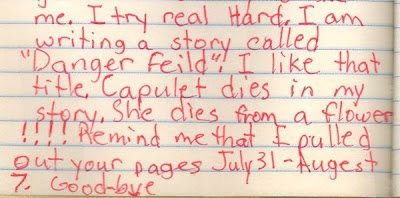 me. I try real Hard. I am
writing a story called
"Danger Feild". I like that
title. Capulet dies in my
story. She dies from a flower
!!!! Remind me that I pulled
out your pages July 31-Augest
7. Good-bye